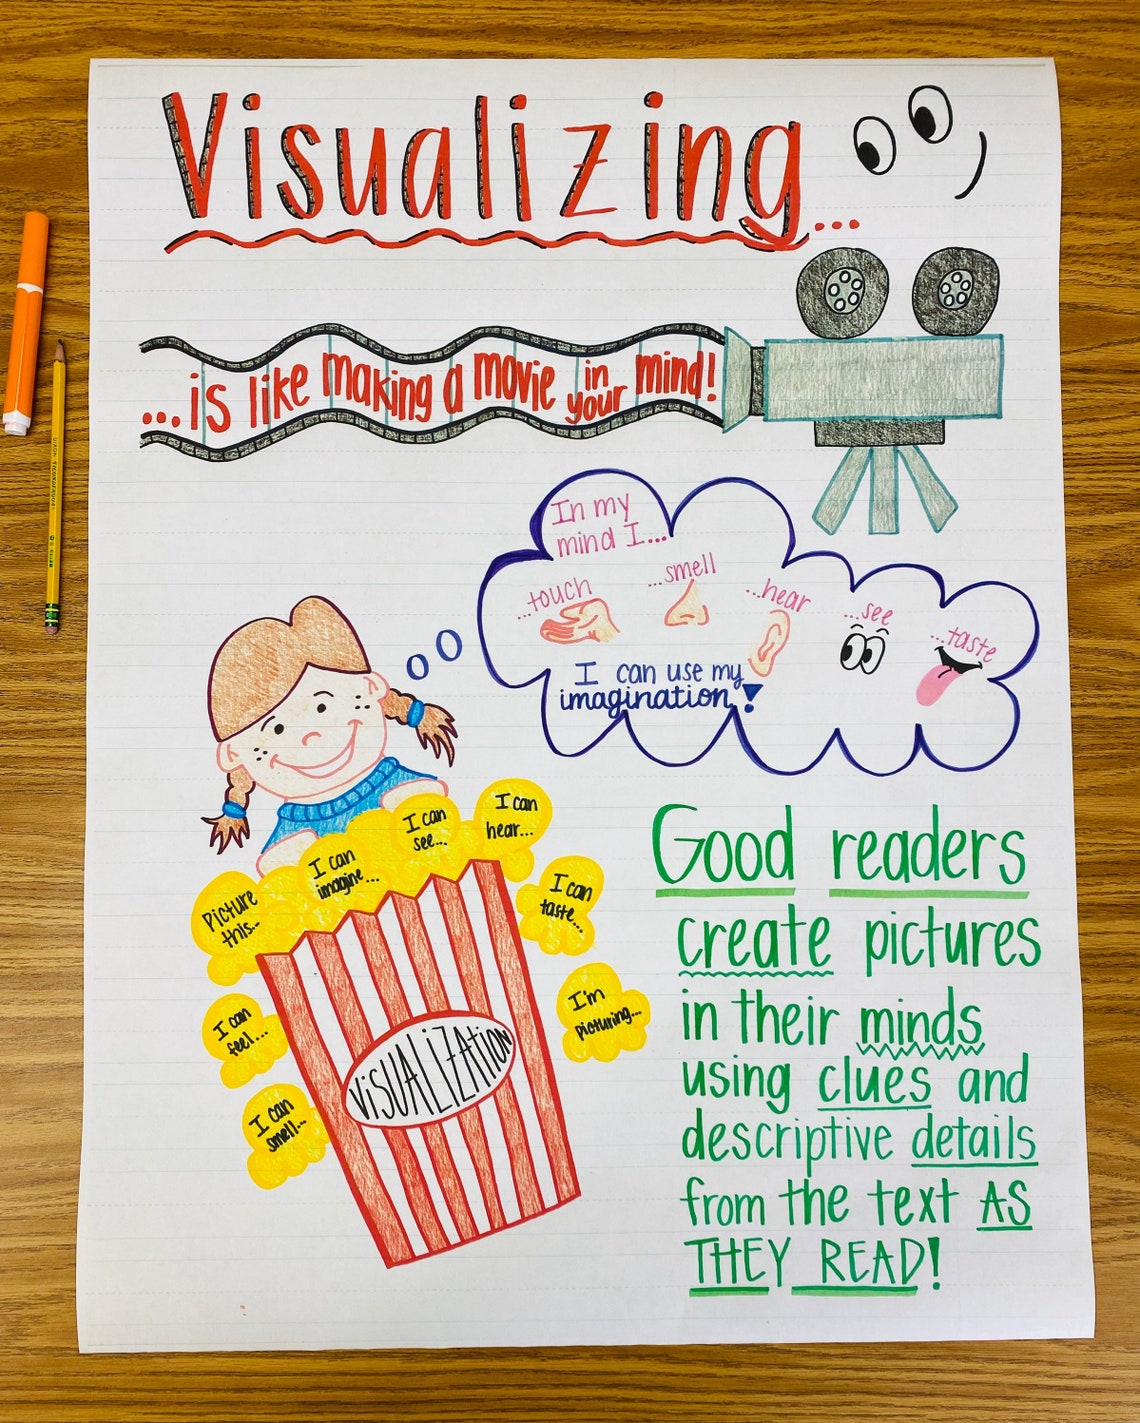 Visualizing...
...is like making a movie in your mind!
In my
mind I...
...touch
...smell
...hear
...see
...taste
I can use my
imagination!
I can
hear...
I can
see...
I can
imagine...
Picture
this...
I can
taste...
I can
feel...
I'm
picturing...
I can
smell...
VISUALIZATION
Good readers
create pictures
in their minds
using clues and
descriptive details
from the text AS
THEY READ!